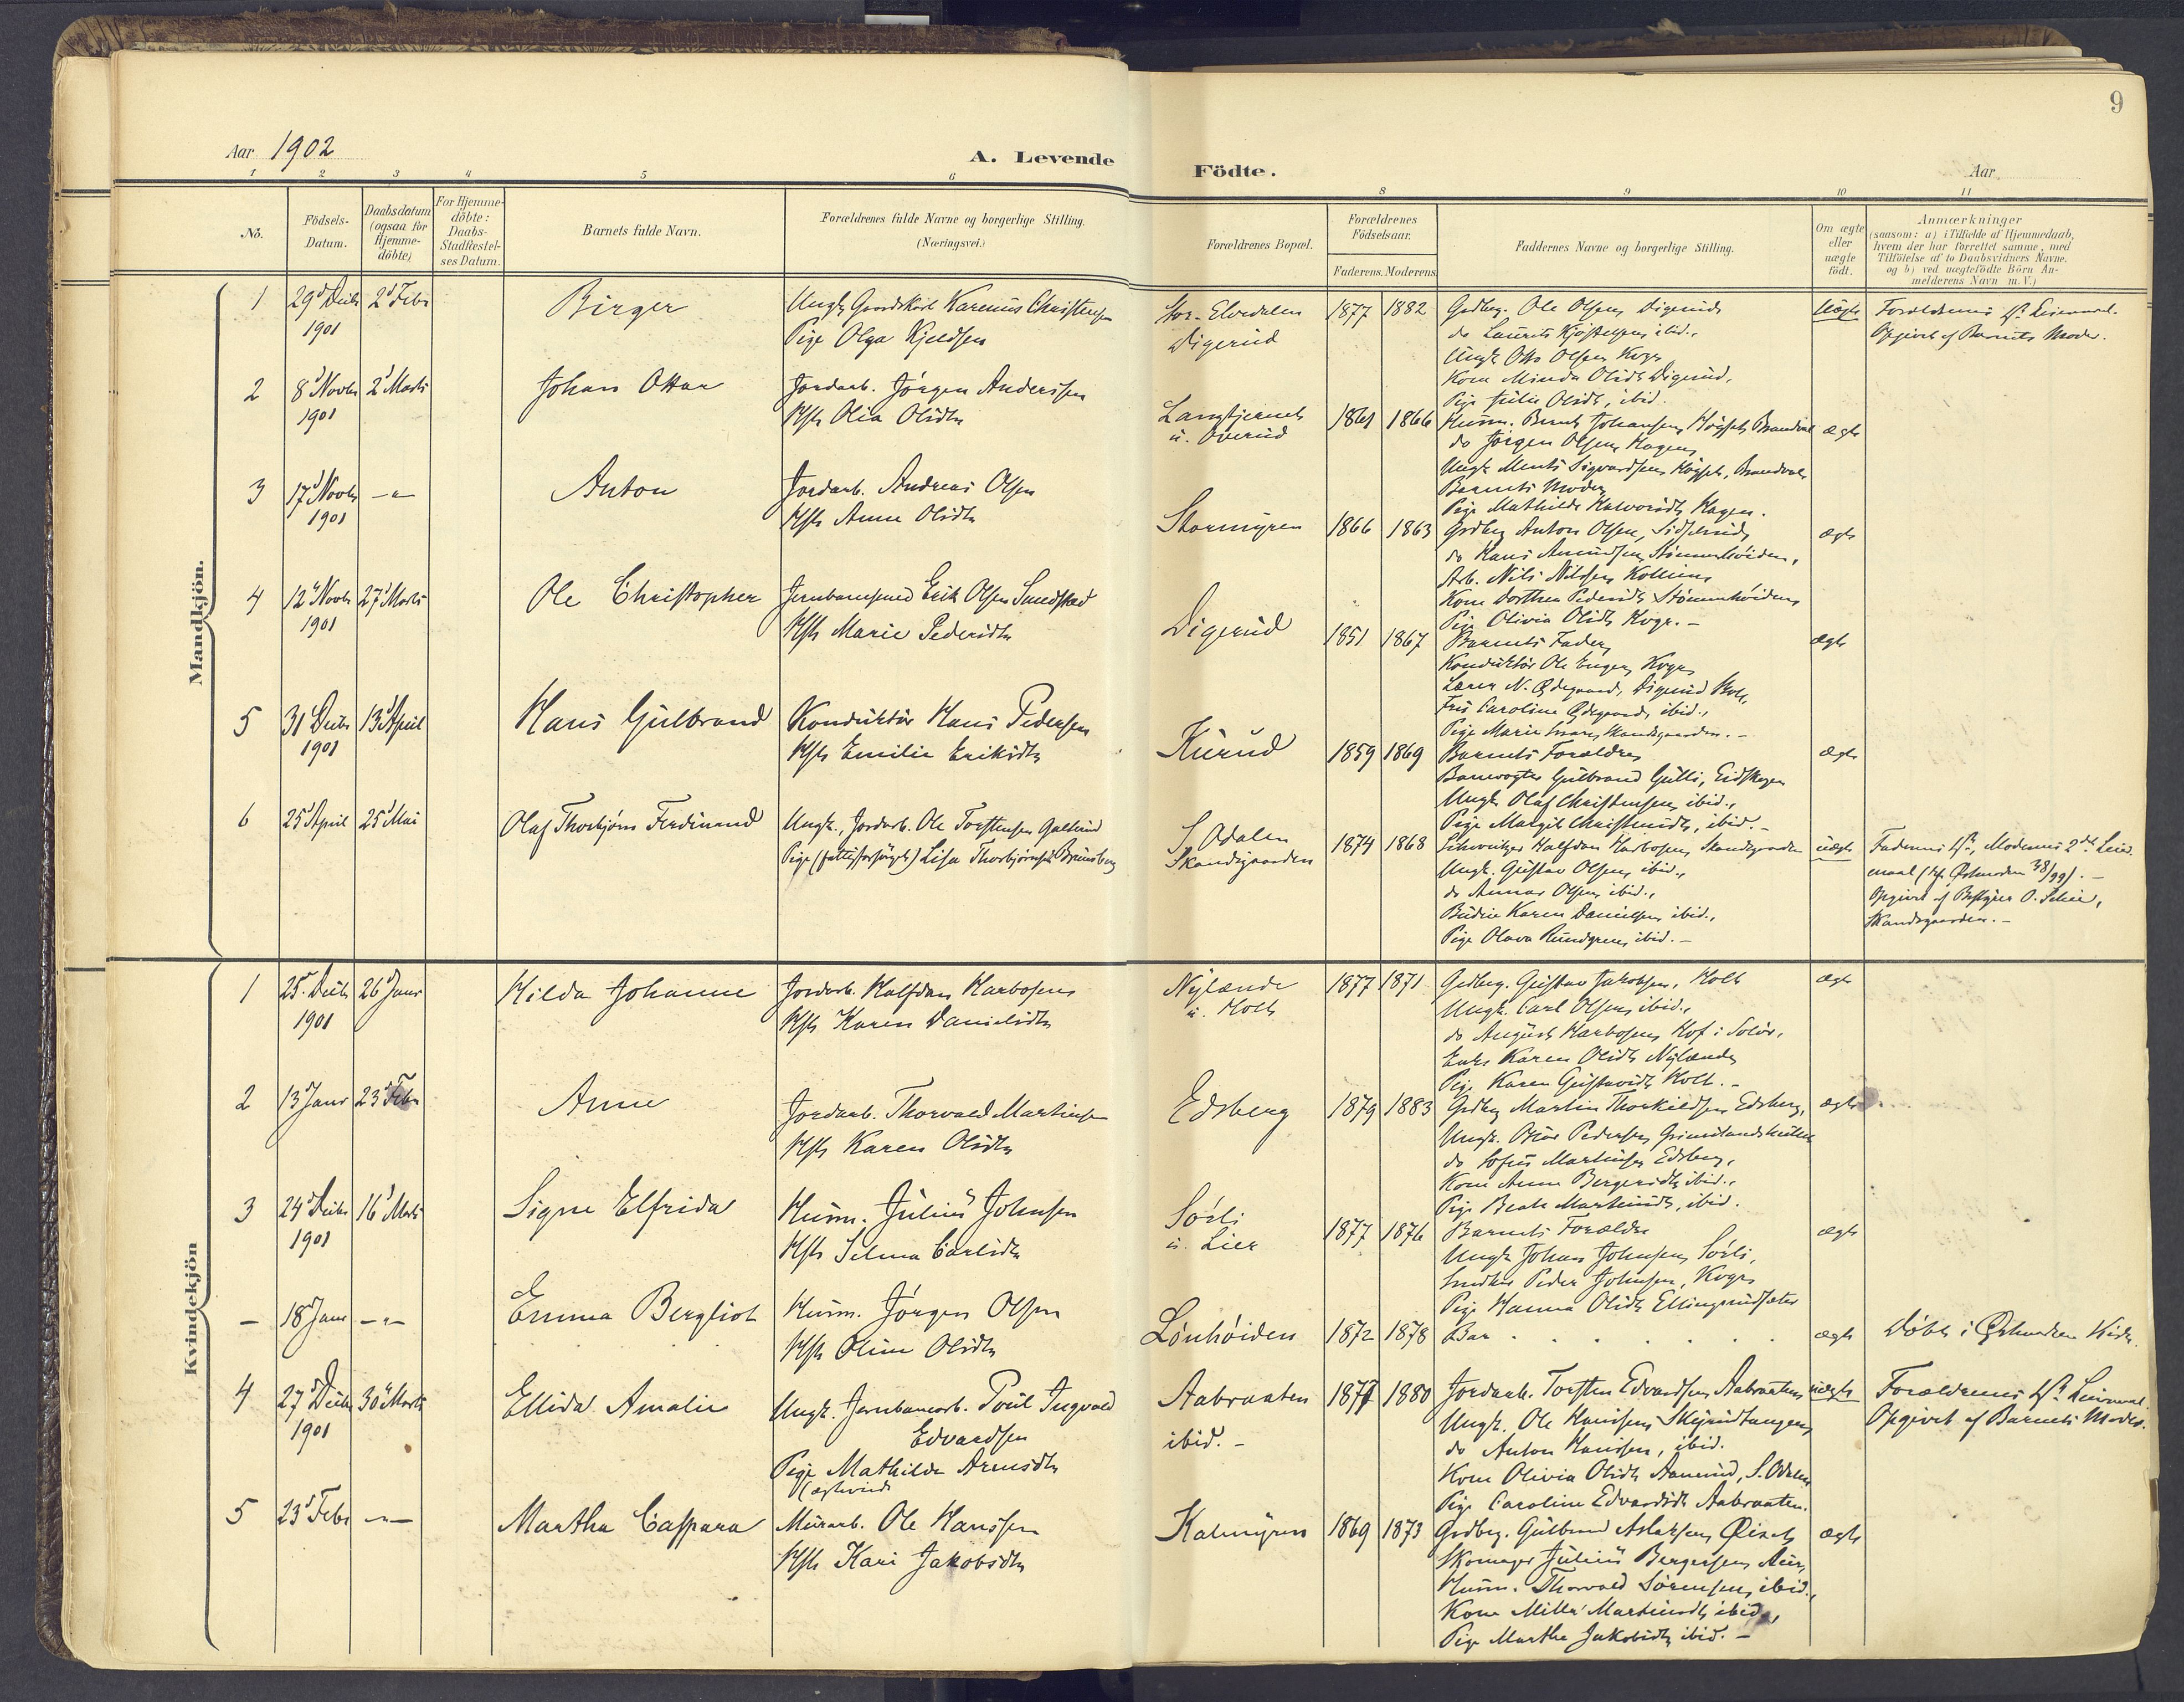 9
Aar 1902
A. Levende Födte.
Aar
1 2 3 4 5 6 8 9 10 11
No.
Födsels-Datum.
Daabsdatum (ogsaa for Hjemme-döbte)
For Hjemme-döbte: Daabs-Stadfæstel-ses Datum.
Barnets fulde Navn.
Forældrenes fulde Navne og borgerlige Stilling.
(Næringsvei.)
Forældrenes Bopæl.
Forældrenes Födselsaar.
Faderens. Moderens
Faddernes Navne og borgerlige Stilling.
Om ægte eller uægte födt.
Anmærkninger
(saasom: a) i Tilfælde af Hjemmedaab,
hvem der har forrettet samme, med
Tilföielse af to Daabsvidners Navne.
og b) ved uægtefödte Börn An-
melderens Navn m. V.)
Mandkjön.
1 29d Decbr 1901 2d Febr Birger
Ungk. Gaardskar Karenius Christensen
Pige Olga Kjeldsen
Digerud
1877 1882
Grdbrg. Ole Olsen, Digerud
do Laurits ibid.,
Ungk. Otto Olsen Kogr.
Kone Minda Olsdt. Digerud,
Pige Julie Olsdt., ibid.
Uægte
Forældrenes 1st Leiermaal.
Opgivet af Barnets Moder.
2 8d Novbr 1901 2d Marts Johan Ottar
Jordarb. Jörgen Anderssen
Hst. Olia Olsdtr
Langtjernet
u. Overud
1861 1866
Husm. Bernt Johansen, Brandval
do Jörgen Olsen, Hagen,
Barnets Moder,
Pige Mathilde Halvorsdt. Hagen.
ægte
3 17d Novbr 1901 -"- Anton
Jordarb. Andreas Olsen
Hst. Anne Olsdtr
Stormyren
1866 1863
Grdbrg Anton Olsen,
do Hans Amundsen,
Arb. Nils Nilssen,
Kone Dorthea Pedersdt.
Pige Olivia Olsdt. Kogr. -
ægte
4 12d Novbr 1901 27d Marts Ole Christopher
Jernbanemand Erik Olsen Sandstad
Hst. Marie Pedersdtr
Digerud
1851 1867
Barnets Fader,
Konduktör Ole Enger, Kogr.
Lærer N. Ödegaard, Digerud
Frk Caroline Ödegaard, ibid.,
Pige Marie
ægte
5 31d Decbr 1901 13d April Hans Gulbrand
Konduktör Hans Pedersen
Hst. Emilie Eriksdtr
Kurud
1859 1869
Barnets Forældre,
Banevogter Gulbrand Gulli, Eidskogen
Ungk. Olaf Christensen, ibid.,
Pige Margit Christensdt., ibid. -
ægte
6 25d April 25d Mai Olaf Thorbjörn Ferdinand
Ungk., Jordarb. Ole Torstensen Galterud
Pige (fattigforsörget) Lisa Thorbjörnsdt. Brunsberg
S. Odalen
Skandsgaarden
1874 1868
Schweitzer Halfdan Harbosen, Skandsgaarden
Ungk. Gustav Olsen, ibid.,
do Annar Olsen, ibid.,
Budeie Karen Danielsen, ibid.,
Pige Olava Rundgren, ibid. -
uægte
Faderens 1st, Moderens 2det Leier-
maal
Opgivet af Bestyrer O.
Skandsgaarden. -
Kvindekjön
1 25d Decbr 1901 26d Janr Hilda Johanne
Jordarb. Halfdan Harbosen
Hst. Karen Danielsdtr
Nylænde
u. Holt
1877 1871
Grdbrg. Gustav Jakobsen, Holt
Ungk. Carl Olsen, ibid.,
do August Harbosen, Hof i Solör,
Enke Karen Olsdt. Nylænde,
Pige Karen Gustavsdt. Holt. -
ægte
2 13d Janr 23d Febr Anne
Jordarb. Thorvald Martinsen
Hst. Karen Olsdtr
Edsberg
1879 1883
Grdbrg Martin Thorkildsen, Edsberg,
Ungk. Oskar Pedersen,
do Sofus Martinsen, Edsberg,
Kone Anne Bergersdt., ibid.,
Pige Beate Martinsdt., ibid.
ægte
3 24d Decbr 1901 16d Marts Signe Elfrida
Husm. Julius Johnsen
Hst. Selma Carlsdtr
Sörli
u. Lier
1877 1876
Barnets Forældre
Ungk. Johan Johnsen, Sörli,
Snedker Peder Johnsen, Kogr,
Pige Hanna Olsdt. Ellingsrudsæter
ægte
- 18d Janr -"- Emma Bergliot
Husm. Jörgen Olsen
Hst. Oline Olsdtr
Lönhöiden
1872 1878
Bar . . . . . .
ægte
Döbt i Østmarken Kirke.
4 27d Decbr 1901 30d Marts Ellida Amalie
Ungk. Jernbanearb. Poul Ingvald
Edvardsen
Pige Mathilde Arnesdtr
Aabraaten
ibid. -
1877 1880
Jordarb. Torsten Edvardsen, Aabraaten,
Ungk. Ole Hansen, Skjerudtangen,
do Anton Hanssen, ibid.
Kone Olivia Olsdt. Aamund, S. Odalen
Pige Caroline Edvardsdt. Aabraaten.
uægte
Forældrenes 1st Leiermaal.
Opgivet af Barnets Moder.
5 23d Febr -"- Martha Caspara
Murarb. Ole Hanssen
Hst. Kari Jakobsdtr
Kalmyren
1869 1873
Grdbrg. Gulbrand Aslaksen,
Skomager Julius Bergersen,
Husm. Thorvald Sörensen, ibid.,
Kone Milla Martinsdt., ibid.,
Pige Martha Jakobsdt., ibid. -
ægte